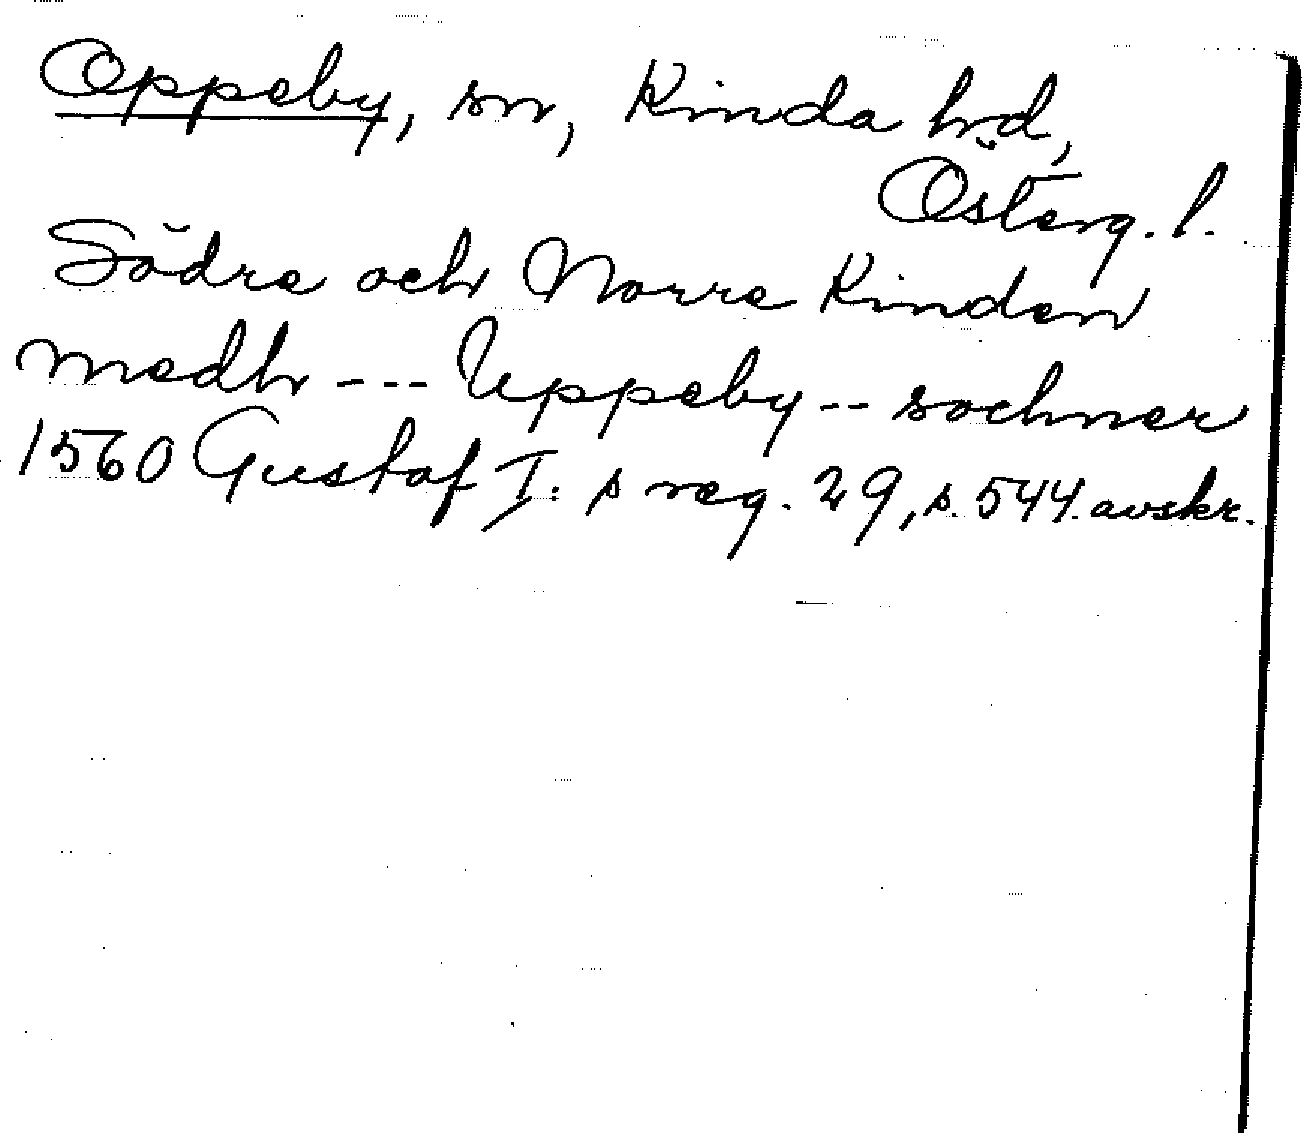 Oppeby, sn, Kinda hd,
Österg. l.
Södre och Norre Kinden
medh --- Uppeby -- sochner
1560 Gustaf I: s reg. 29, s. 544 avskr.